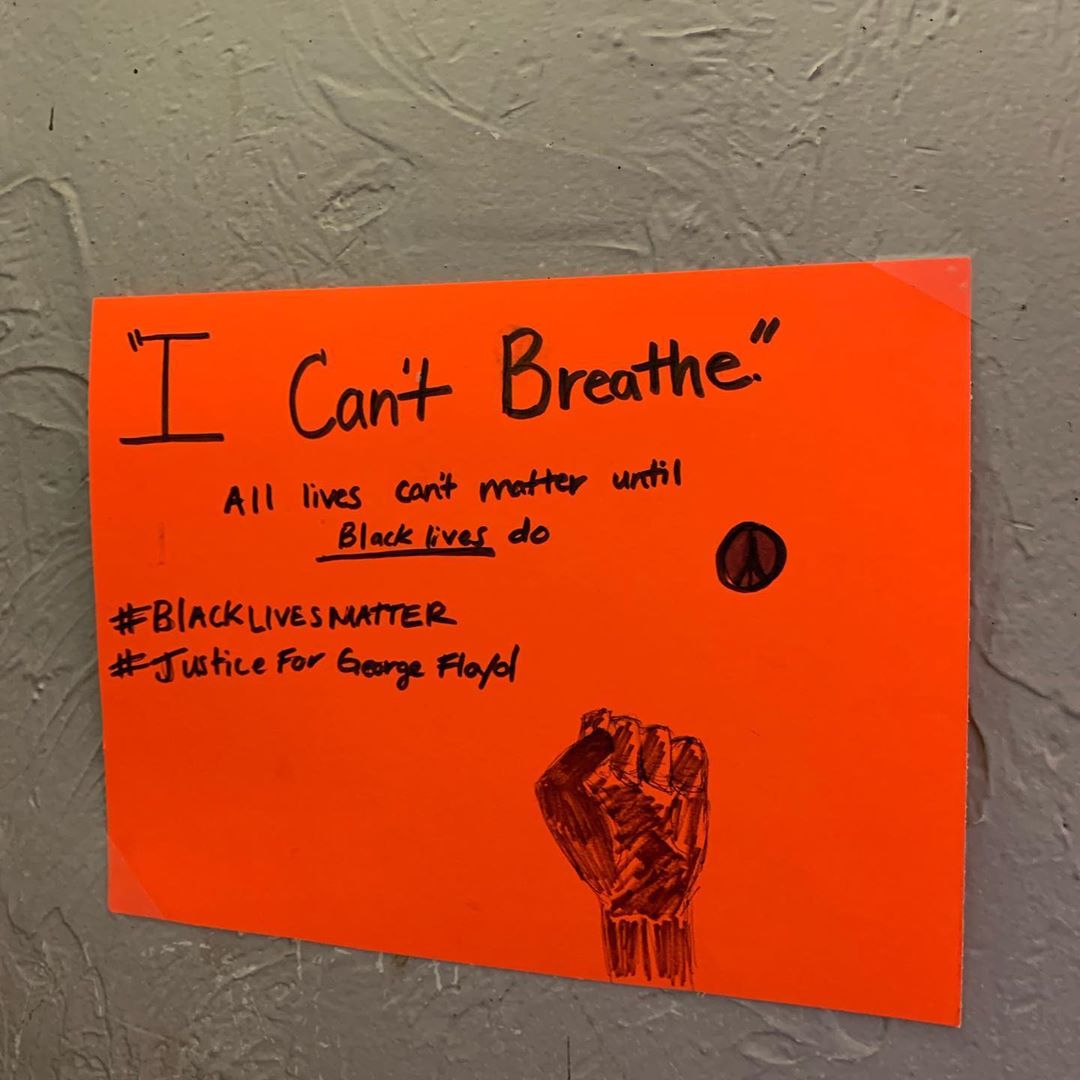 "I Can't Breathe."
All lives can't matter until
Black lives do
#BLACKLIVESMATTER
#Justice For George Floyd